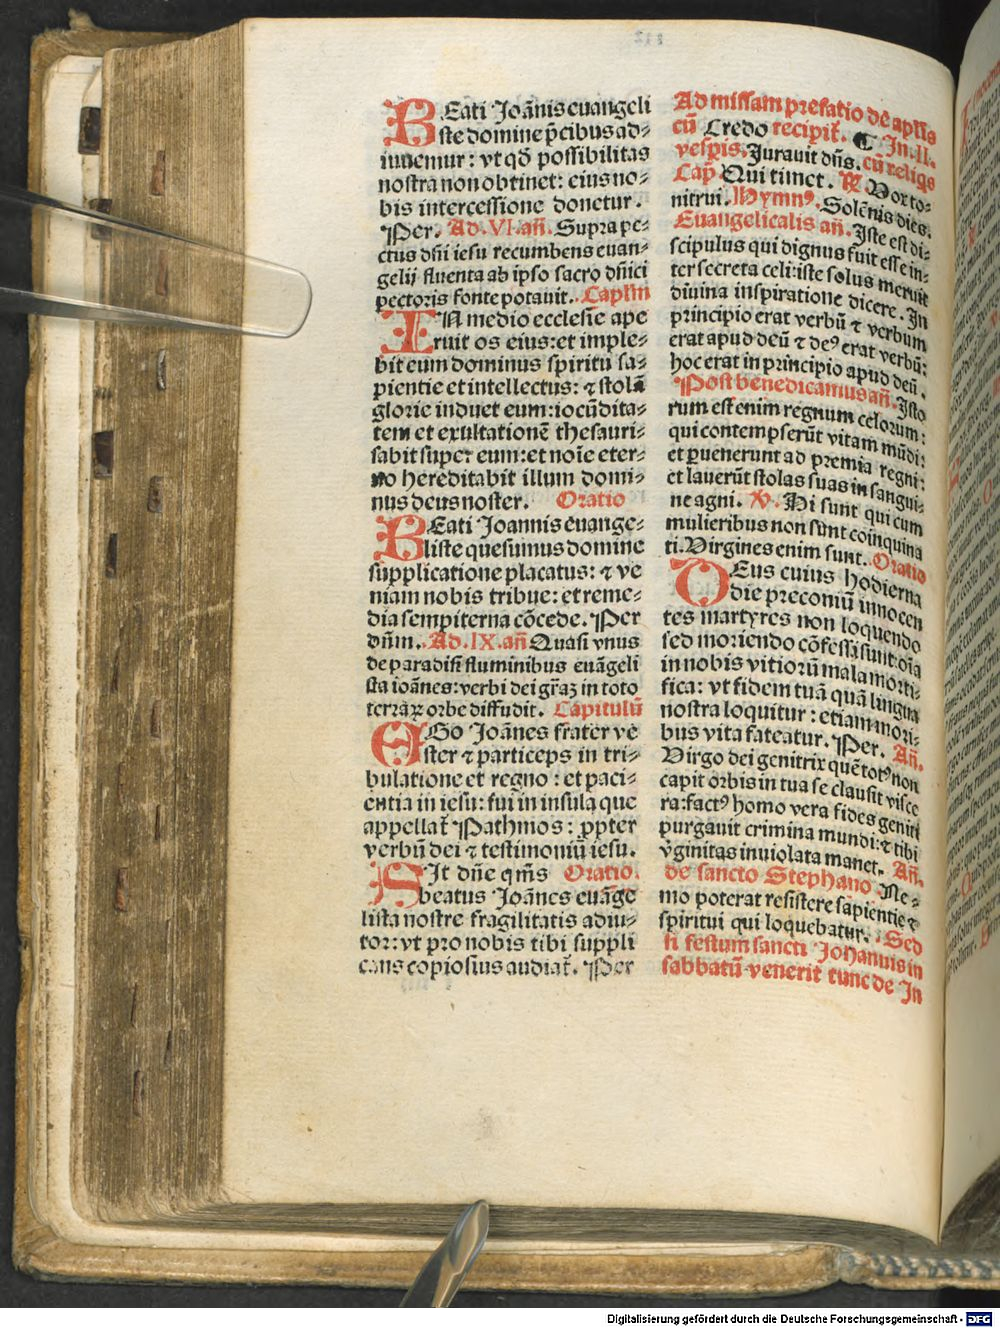 BEati Joānis euangeli
ste domine p̄cibus ad⸗
iuuemur: vt qd̄ possibilitas
nostra non obtinet: eius no⸗
bis intercessione donetur.
Per. Ad. VI. añ. Supra pe⸗
ctus dñi iesu recumbens euan⸗
gelij fluenta ab ipso sacro dñici
pectoris fonte potauit. Caplm̄
IN medio ecclesie ape
ruit os eius: et imple⸗
bit eum dominus spiritu sa⸗
pientie et intellectus: ⁊ stolā
glorie induet eum: iocūdita⸗
tem et exultationē thesauri⸗
sabit super eum: et noīe eter⸗
no hereditabit illum domi⸗
nus deus noster. Oratio
BEati Joannis euange⸗
liste quesumus domine
supplicatione placatus: ⁊ ve
niam nobis tribue: et reme⸗
dia sempiterna cōcede. Per
dñm. Ad. IX. añ Quasi vnus
de paradisi fluminibus euāgeli
sta ioānes: verbi dei gr̄aꝫ in toto
terraꝝ orbe diffudit. Capitulū
EGo Joānes frater ve
ster ⁊ particeps in tri⸗
bulatione et regno: et paci⸗
entia in iesu: fui in insula que
appellat̄ Pathmos: ꝓpter
verbū dei ⁊ testimoniū iesu.
SIt dñe qm̄s Oratio.
beatus Joānes euāge
lista nostre fragilitatis adiu⸗
tor: vt pro nobis tibi suppli
cans copiosius audiat̄. Per
Ad missam prefatio de aplīs
cū Credo recipit̄. ¶ In. II.
vespis. Jurauit dñs. cū reliqs
Cap̄ Qui timet. ℟. Vox to⸗
nitrui. Hymnꝰ. Solēnis dies.
Euangelicalis añ. Iste est di⸗
scipulus qui dignus fuit esse in⸗
ter secreta celi: iste solus meruit
diuina inspiratione dicere. In
principio erat verbū ⁊ verbum
erat apud deū ⁊ deꝰ erat verbū:
hoc erat in principio apud deū.
Post benedicamus añ. Isto
rum est enim regnum celorum:
qui contempserūt vitam mūdi:
et puenerunt ad premia regni:
et lauerūt stolas suas in sangui⸗
ne agni. ℣. Hi sunt qui cum
mulieribus non sunt coinquina
ti. Virgines enim sunt. Oratio
DEus cuius hodierna
die preconiū innocen
tes martyres non loquendo
sed moriendo cōfessi sunt: oīa
in nobis vitiorū mala morti⸗
fica: vt fidem tuā quā lingua
nostra loquitur: etiam mori⸗
bus vita fateatur. Per. Añ.
Virgo dei genitrix quē totꝰ non
capit orbis in tua se clausit visce
ra: factꝰ homo vera fides geniti
purgauit crimina mundi: ⁊ tibi
v̄ginitas inuiolata manet. Añ.
de sancto Stephano Ne⸗
mo poterat resistere sapientie ⁊
spiritui qui loquebatur. Sed
si festum sancti Johannis in
sabbatū venerit tunc de In
Digitalisierung gefördert durch die Deutsche Forschungsgemeinschaft - DFG